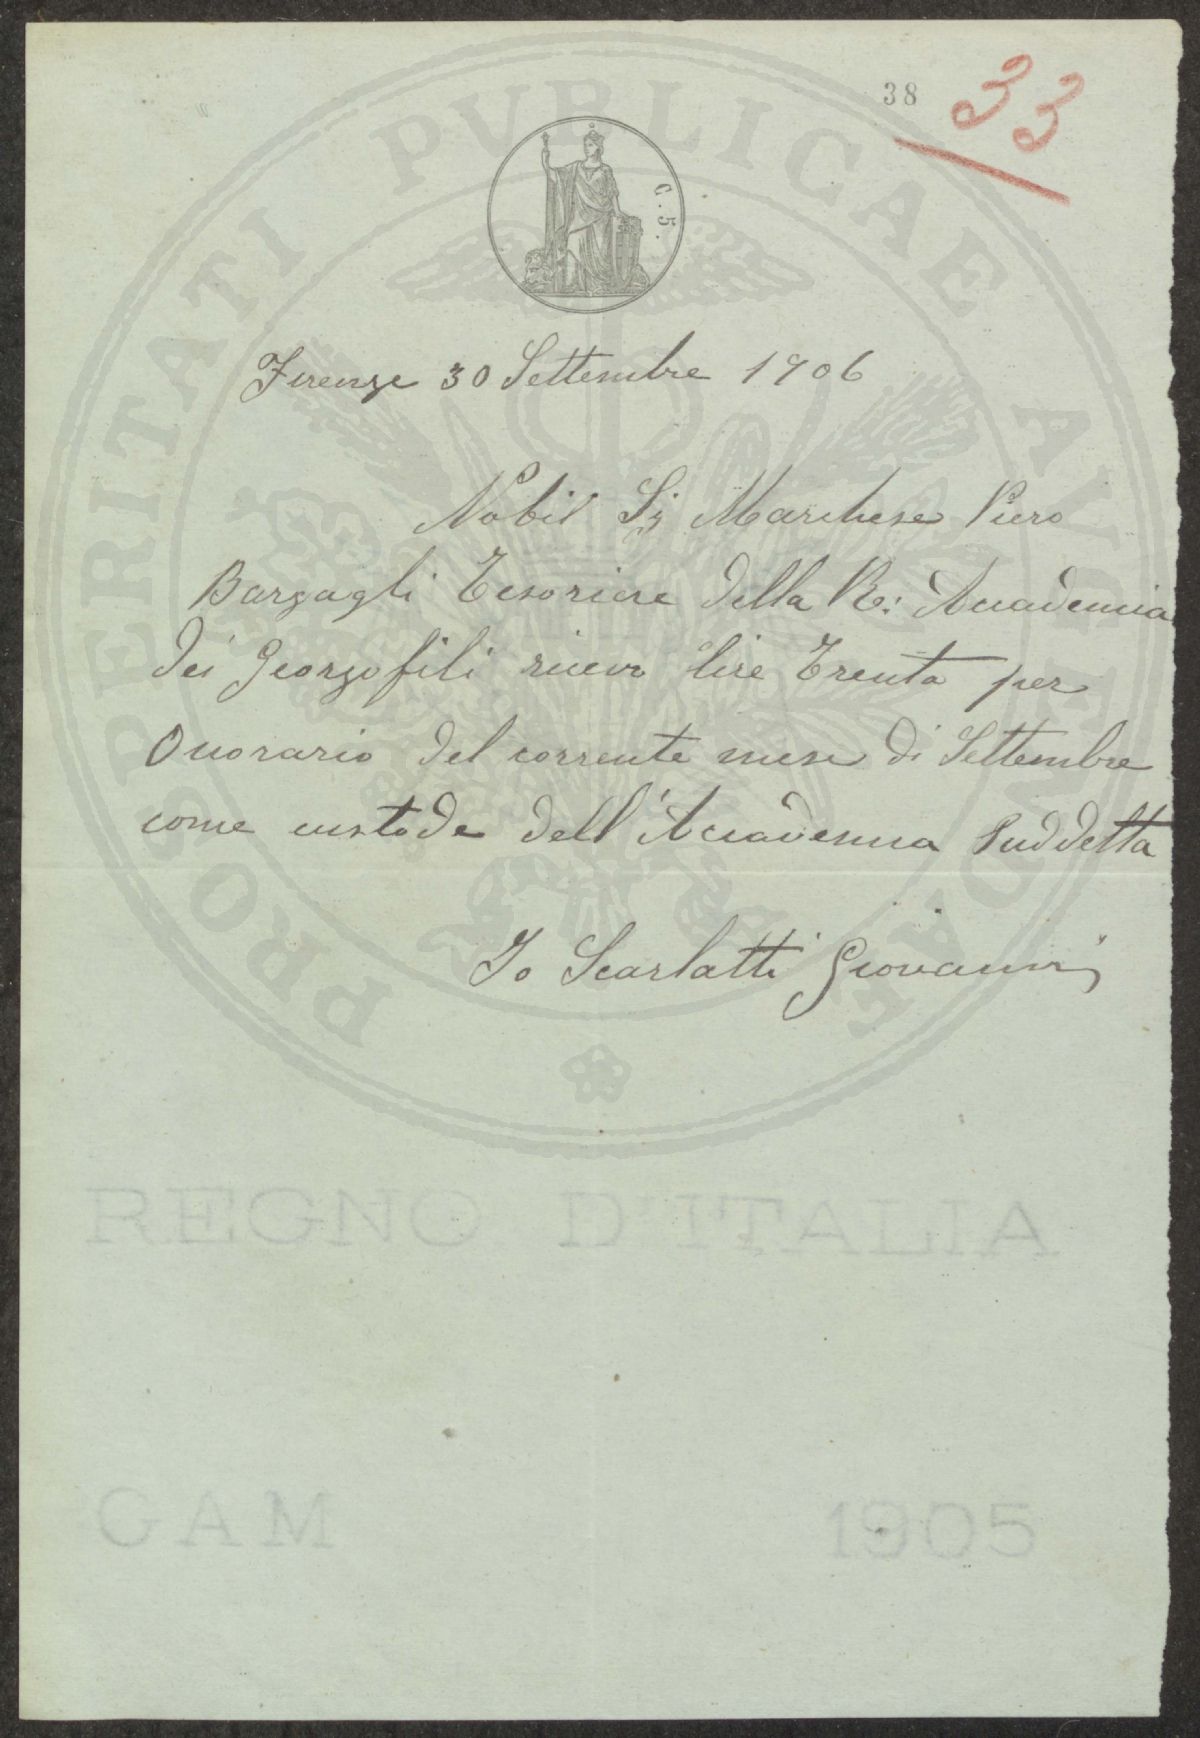 38
33
C. 5.
PROSPERITATI PVBLICAE AVGENDAE
Firenze 30 Settembre 1906
Nobil Sig Marchese Piero
Bargagli Tesoriere della R: Accademia
dei Georgofili ricevo lire Trenta per
Onorario del corrente mese di Settembre
come custode dell'Accademia Suddetta
Io Scarlatti Giovanni
REGNO D'ITALIA
GAM 1905